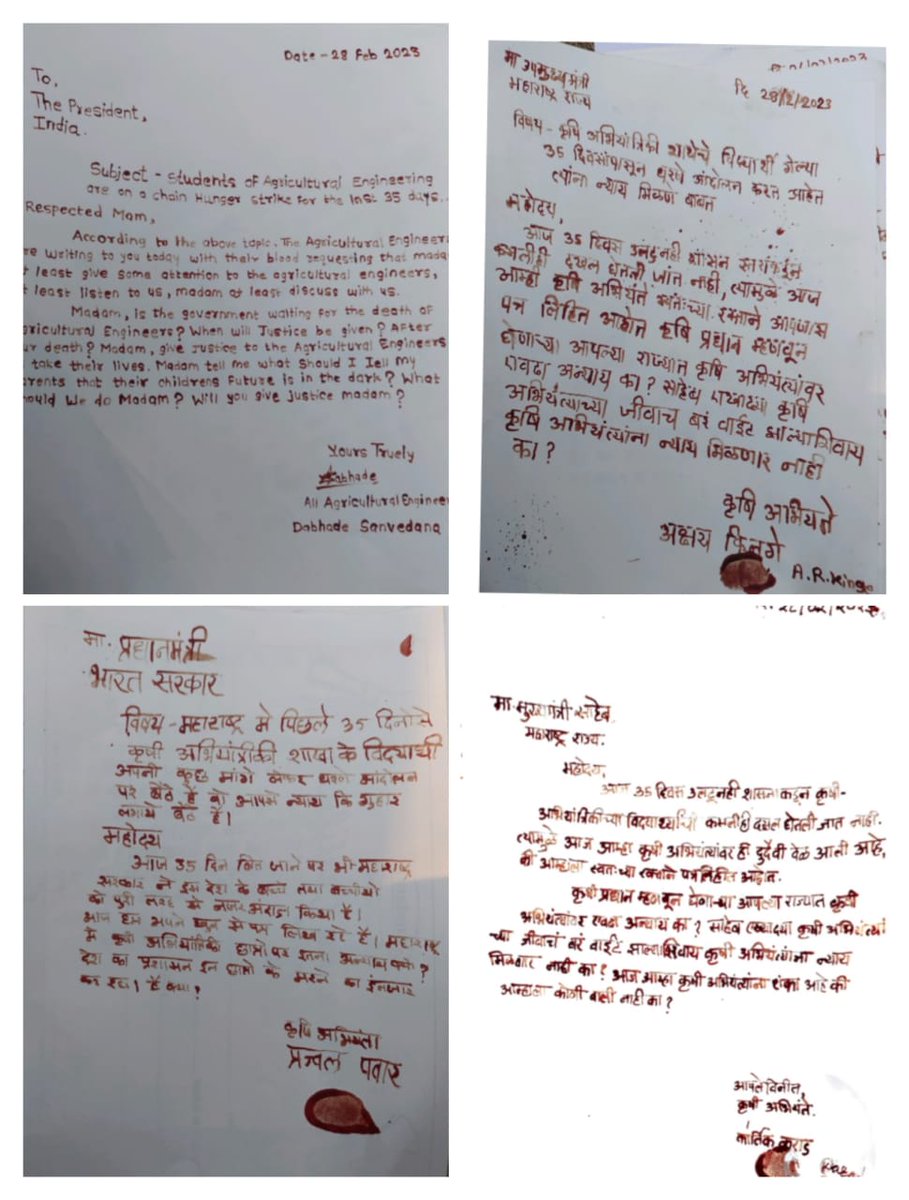 Date - 28 Feb 2023
To,
The President,
India.
Subject - Students of Agricultural Engineering
are on a chain Hunger strike for the last 35 days..
Respected Mam,
According to the above topic. The Agricultural Engineer
re writing to you today with their blood requesting that mada
t least give some attention to the agricultural engineers,
t least listen to us, madam at least discuss with us.
Madam, is the government waiting for the death of
gricultural Engineers? When will Justice be given? After
ur death? Madam, give justice to the Agricultural Engineers
take their lives. Madam tell me what Should I Tell my
arents that their childrens Future is in the dark? What
hould We do Madam? Will you give justice madam?
Yours Truely
Dabhade
All Agricultural Engineer
Dabhade Sanvedana
मा उपमुख्यमंत्री
महाराष्ट्र राज्य
दि 28/2/2023
विषय - कृषि अभियांत्रिकी शाखेचे विद्यार्थी गेल्या
35 दिवसांपासून धरणे आंदोलन करत आहेत
त्यांना न्याय मिळणे बाबत
महोदय,
आज 35 दिवस उलटूनही शासन स्तरांकडून
कसलीही दखल घेतली जात नाही, त्यामुळे आज
आम्ही कृषि अभियंते स्वतःच्या रक्ताने आपणास
पत्र लिहित आहोत कृषि प्रधान म्हणवून
घेणाच्या आपल्या राज्यात कृषि अभियंत्यांवर
एवढा अन्याय का? साहेब एखाद्या कृषि
अभियंत्याच्या जीवाच बरं वाईट झाल्याशिवाय
कृषि अभियंत्यांना न्याय मिळणार नाही
का?
कृषि अभियंते
अक्षय किनगे
A.R.Kinge
मा. प्रधानमंत्री
भारत सरकार
विषय - महाराष्ट्र मे पिछले 35 दिनो से
कृषी अभियांत्रीकी शाखा के विद्यार्थी
अपनी कुछ मांगे लेकर धरणे आंदोलन
पर बैठे है वो आपसे न्याय कि गुहार
लगाये बैठे है।
महोदय
आज 35 दिन बित जाने पर भी महाराष्ट्र
सरकार ने इस देश के बच्चे तथा बच्चीयो
को पुरी तरह से नजर अंदाज किया है।
आज हम अपने खून से पत्र लिख रहे है। महाराष्ट्र
मे कृषी अभियांत्रिकी छात्रो पर इतना अन्याय क्यो?
देश का प्रशासन इन छात्रो के मरने का इंतजार
कर रहा है क्या?
कृषि अभियंता
प्रज्वल पवार
मा. मुख्यमंत्री साहेब.
महाराष्ट्र राज्य.
महोदय,
आज 35 दिवस उलटूनही शासनाकडून कृषी-
अभियांत्रिकीच्या विद्यार्थ्यांची कसलीही दखल घेतली जात नाही.
त्यामुळे आज आम्हा कृषी अभियंत्यांवर ही दुर्दैवी वेळ आली आहे,
की आम्हाला स्वतःच्या रक्ताने पत्र लिहीत आहोत.
कृषी प्रधान म्हणवून घेणाऱ्या आपल्या राज्यात कृषी
अभियंत्यांवर एवढा अन्याय का? साहेब एखाद्या कृषी अभियंत्यां
च्या जीवाचं बरं वाईट झाल्याशिवाय कृषी अभियंत्यांना न्याय
मिळणार नाही का? आज आम्हा कृषी अभियंत्यांना शंका आहे की
आम्हाला कोणी वाली नाही का?
आपले विनीत,
कृषी अभियंते.
कार्तिक कराड